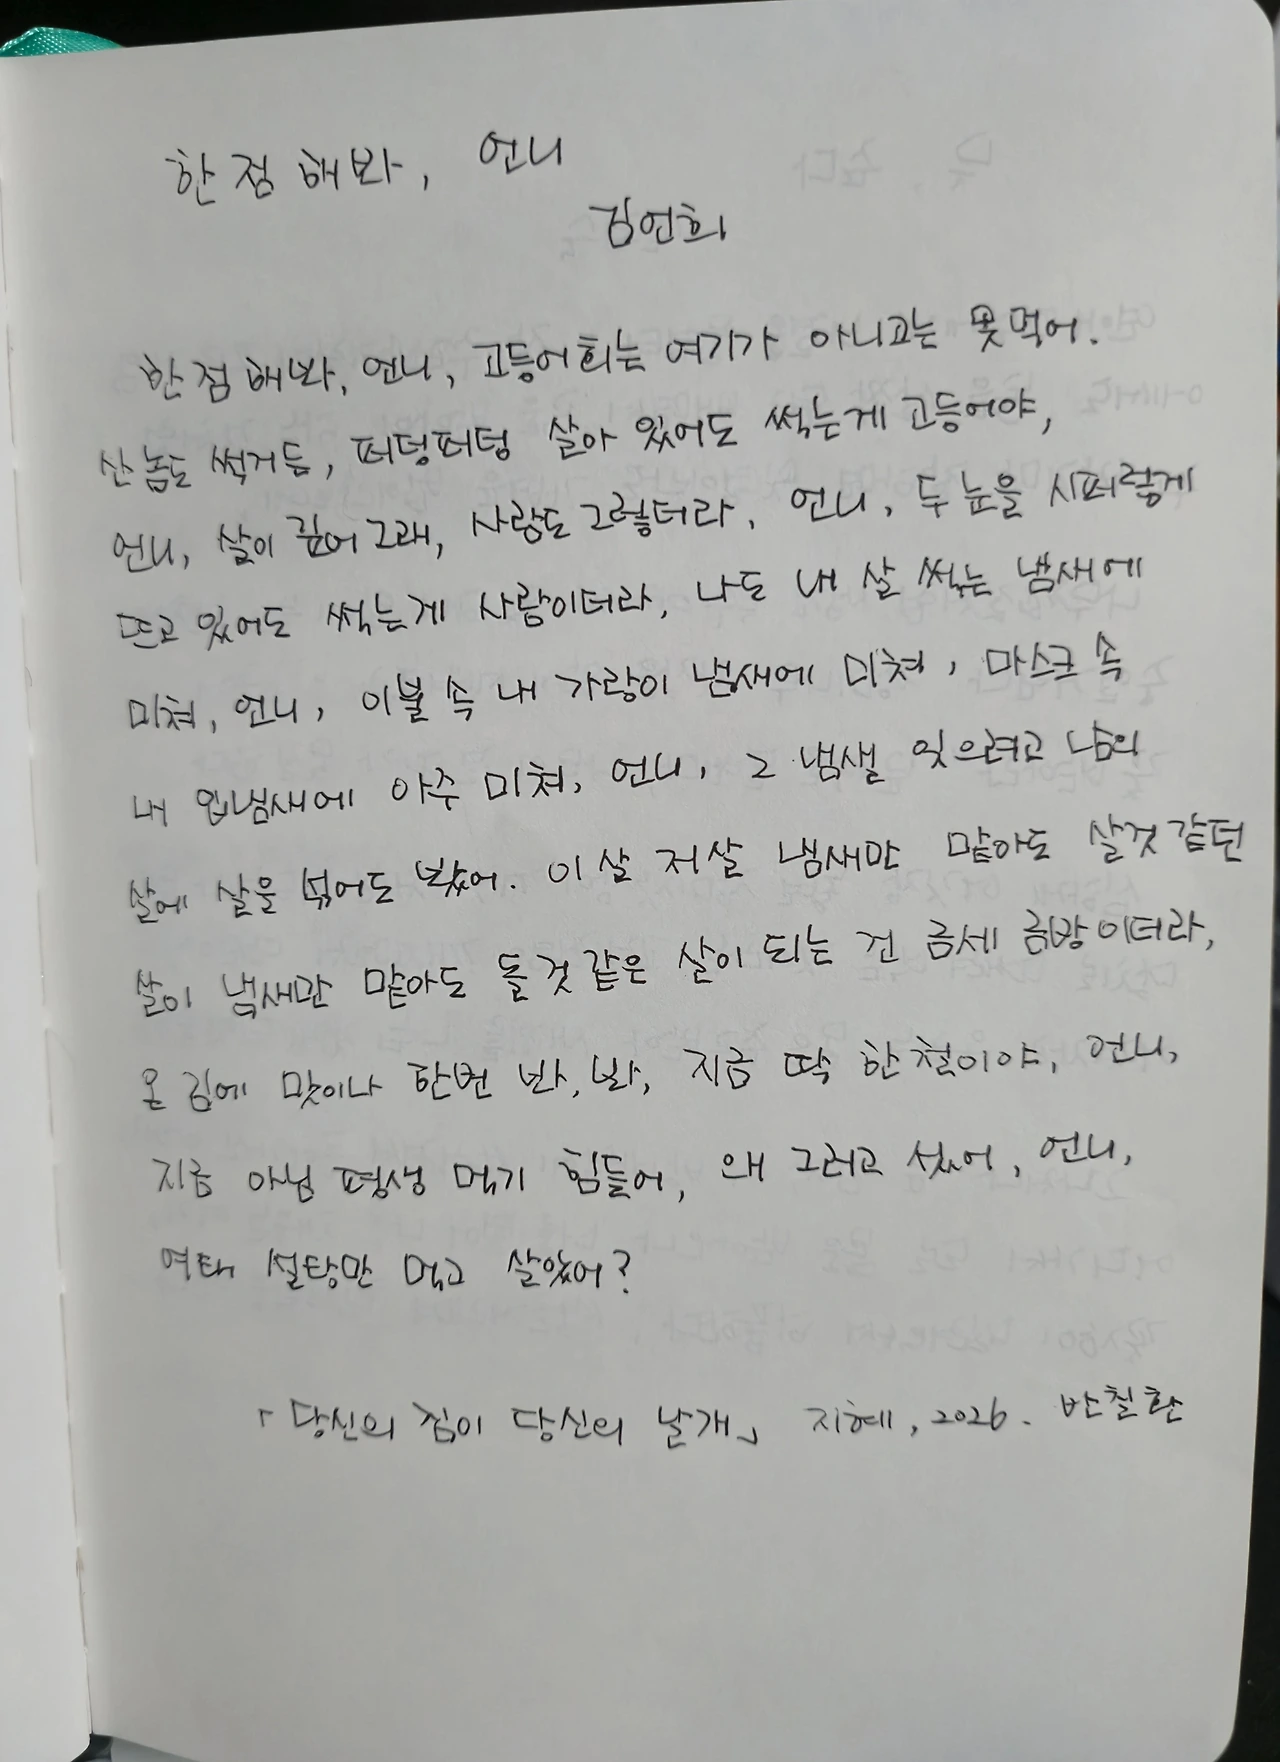 한점해봐, 언니
김언희
한점해봐, 언니, 고등어회는 여기가 아니고는 못먹어.
산놈도 썩거든, 퍼덩퍼덩 살아 있어도 썩는게 고등어야,
언니, 살이 깊어 그래, 사람도 그렇더라, 언니, 두 눈을 시퍼렇게
뜨고 있어도 썩는게 사람이더라, 나도 내 살 썩는 냄새에
미쳐, 언니, 이불 속 내 가랑이 냄새에 미쳐, 마스크 속
내 입냄새에 아주 미쳐, 언니, 그 냄샐 잊으려고 남의
살에 살을 섞어도 봤어. 이 살 저살 냄새만 맡아도 살것 같던
살이 냄새만 맡아도 돌것 같은 살이 되는 건 금세 금방이더라,
온 김에 맛이나 한번 봐, 봐, 지금 딱 한철이야, 언니,
지금 아님 평생 먹기 힘들어, 왜 그러고 섰어, 언니,
여태 설탕만 먹고 살았어?
「당신의 짐이 당신의 날개」 지혜, 2026. 반칠환